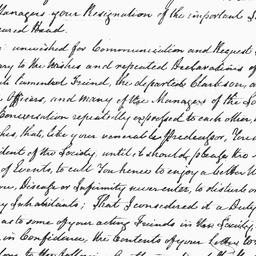 Managers your Resignation of the important
Head.
: unwished for Communication and Request
ary to the Wishes and repeated Declarations of
Lamented Friend, the departed Clarkson, a
Officers, and many of the Managers of the So
Conversation repeatedly expressed to each other,
hes, that, like your venerable Predecessor, You
dent of the Society, until it should please
of Events, to call You hence to enjoy a better W
Disease or Infirmity never enter, to disturb o
y Inhabitants; That I considered it a Duty
as to some of your acting Friends in the Society,
in Confidence, the Contents of your Letter to